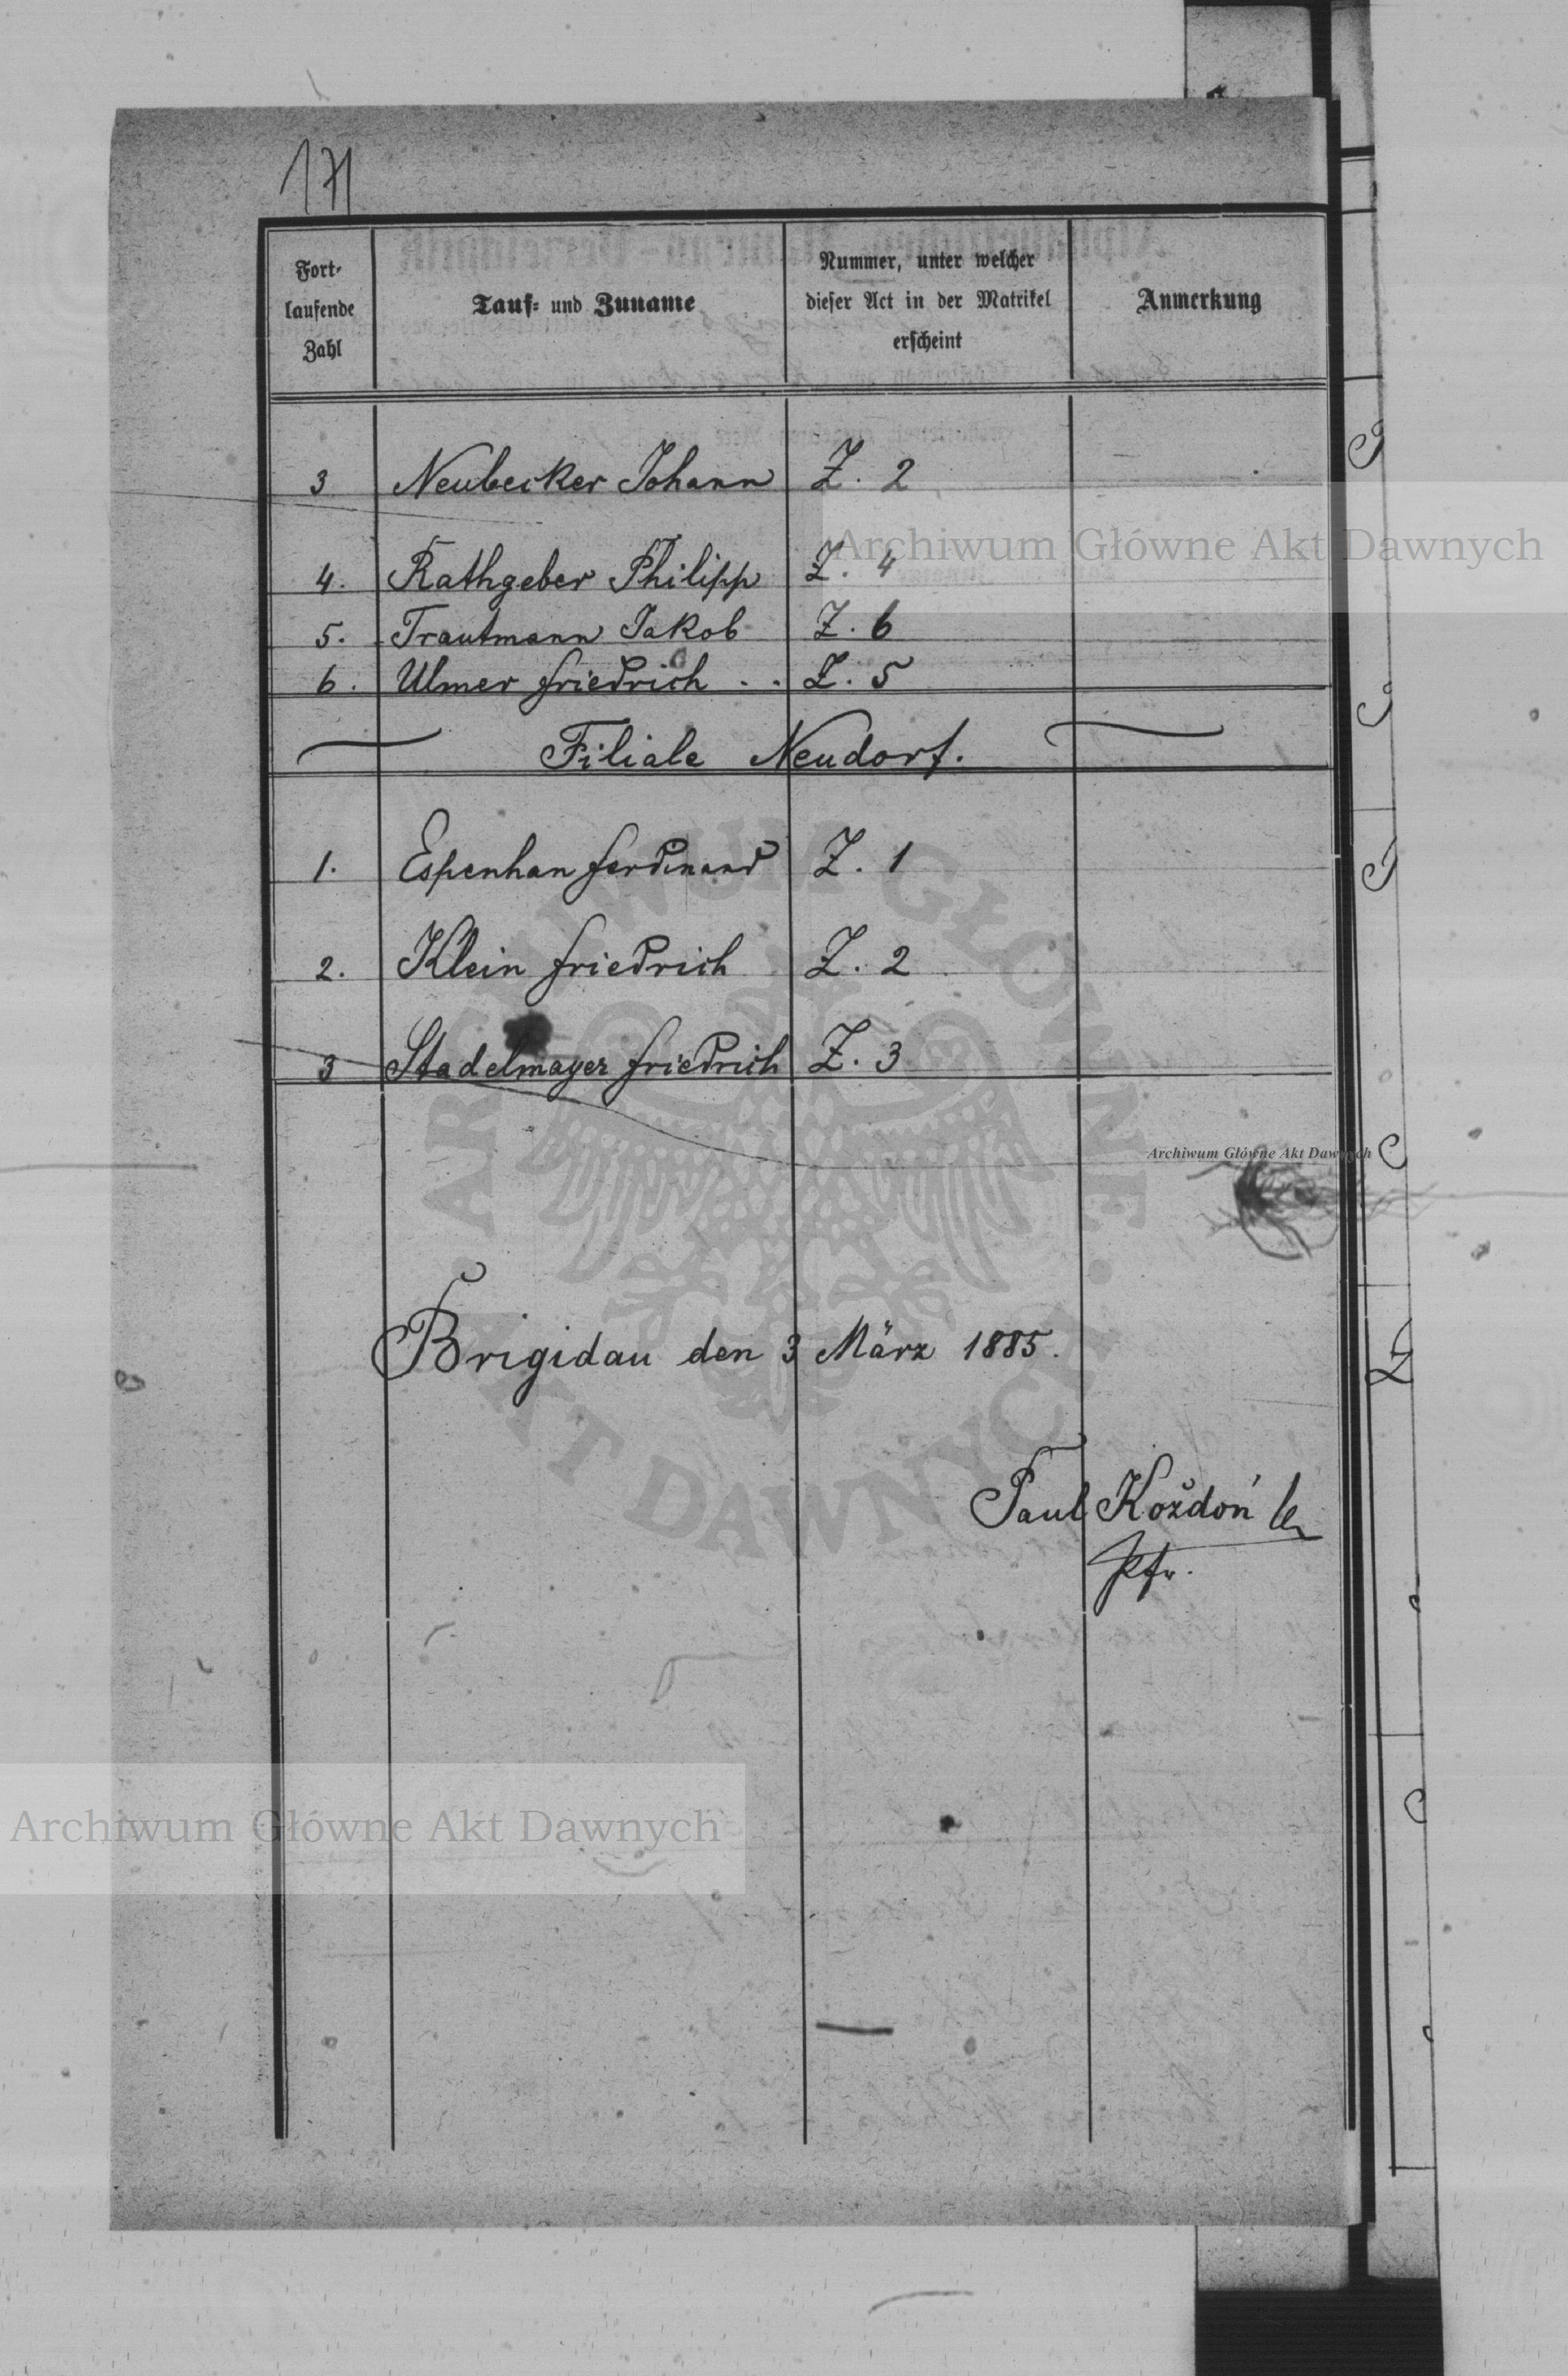 171
Fort-
laufende
Zahl
Tauf- und Zuname
Nummer, unter welcher
dieser Act in der Matrikel
erscheint
Anmerkung
3 Neubecker Johann Z. 2
Archiwum Główne Akt Dawnych
4. Rathgeber Philipp Z. 4
5. Trautmann Jakob Z. 6
6. Ulmer Friedrich . . Z. 5
Filiale Neudorf.
1. Espenhan Ferdinand Z. 1
2. Klein Friedrich Z. 2
3 Stadelmayer Friedrich Z. 3
ARCHIWUM GŁÓWNE · AKT DAWNYCH ·
Archiwum Główne Akt Dawnych
Brigidau den 3 März 1885.
Paul Koždoń
Pfr.
Archiwum Główne Akt Dawnych